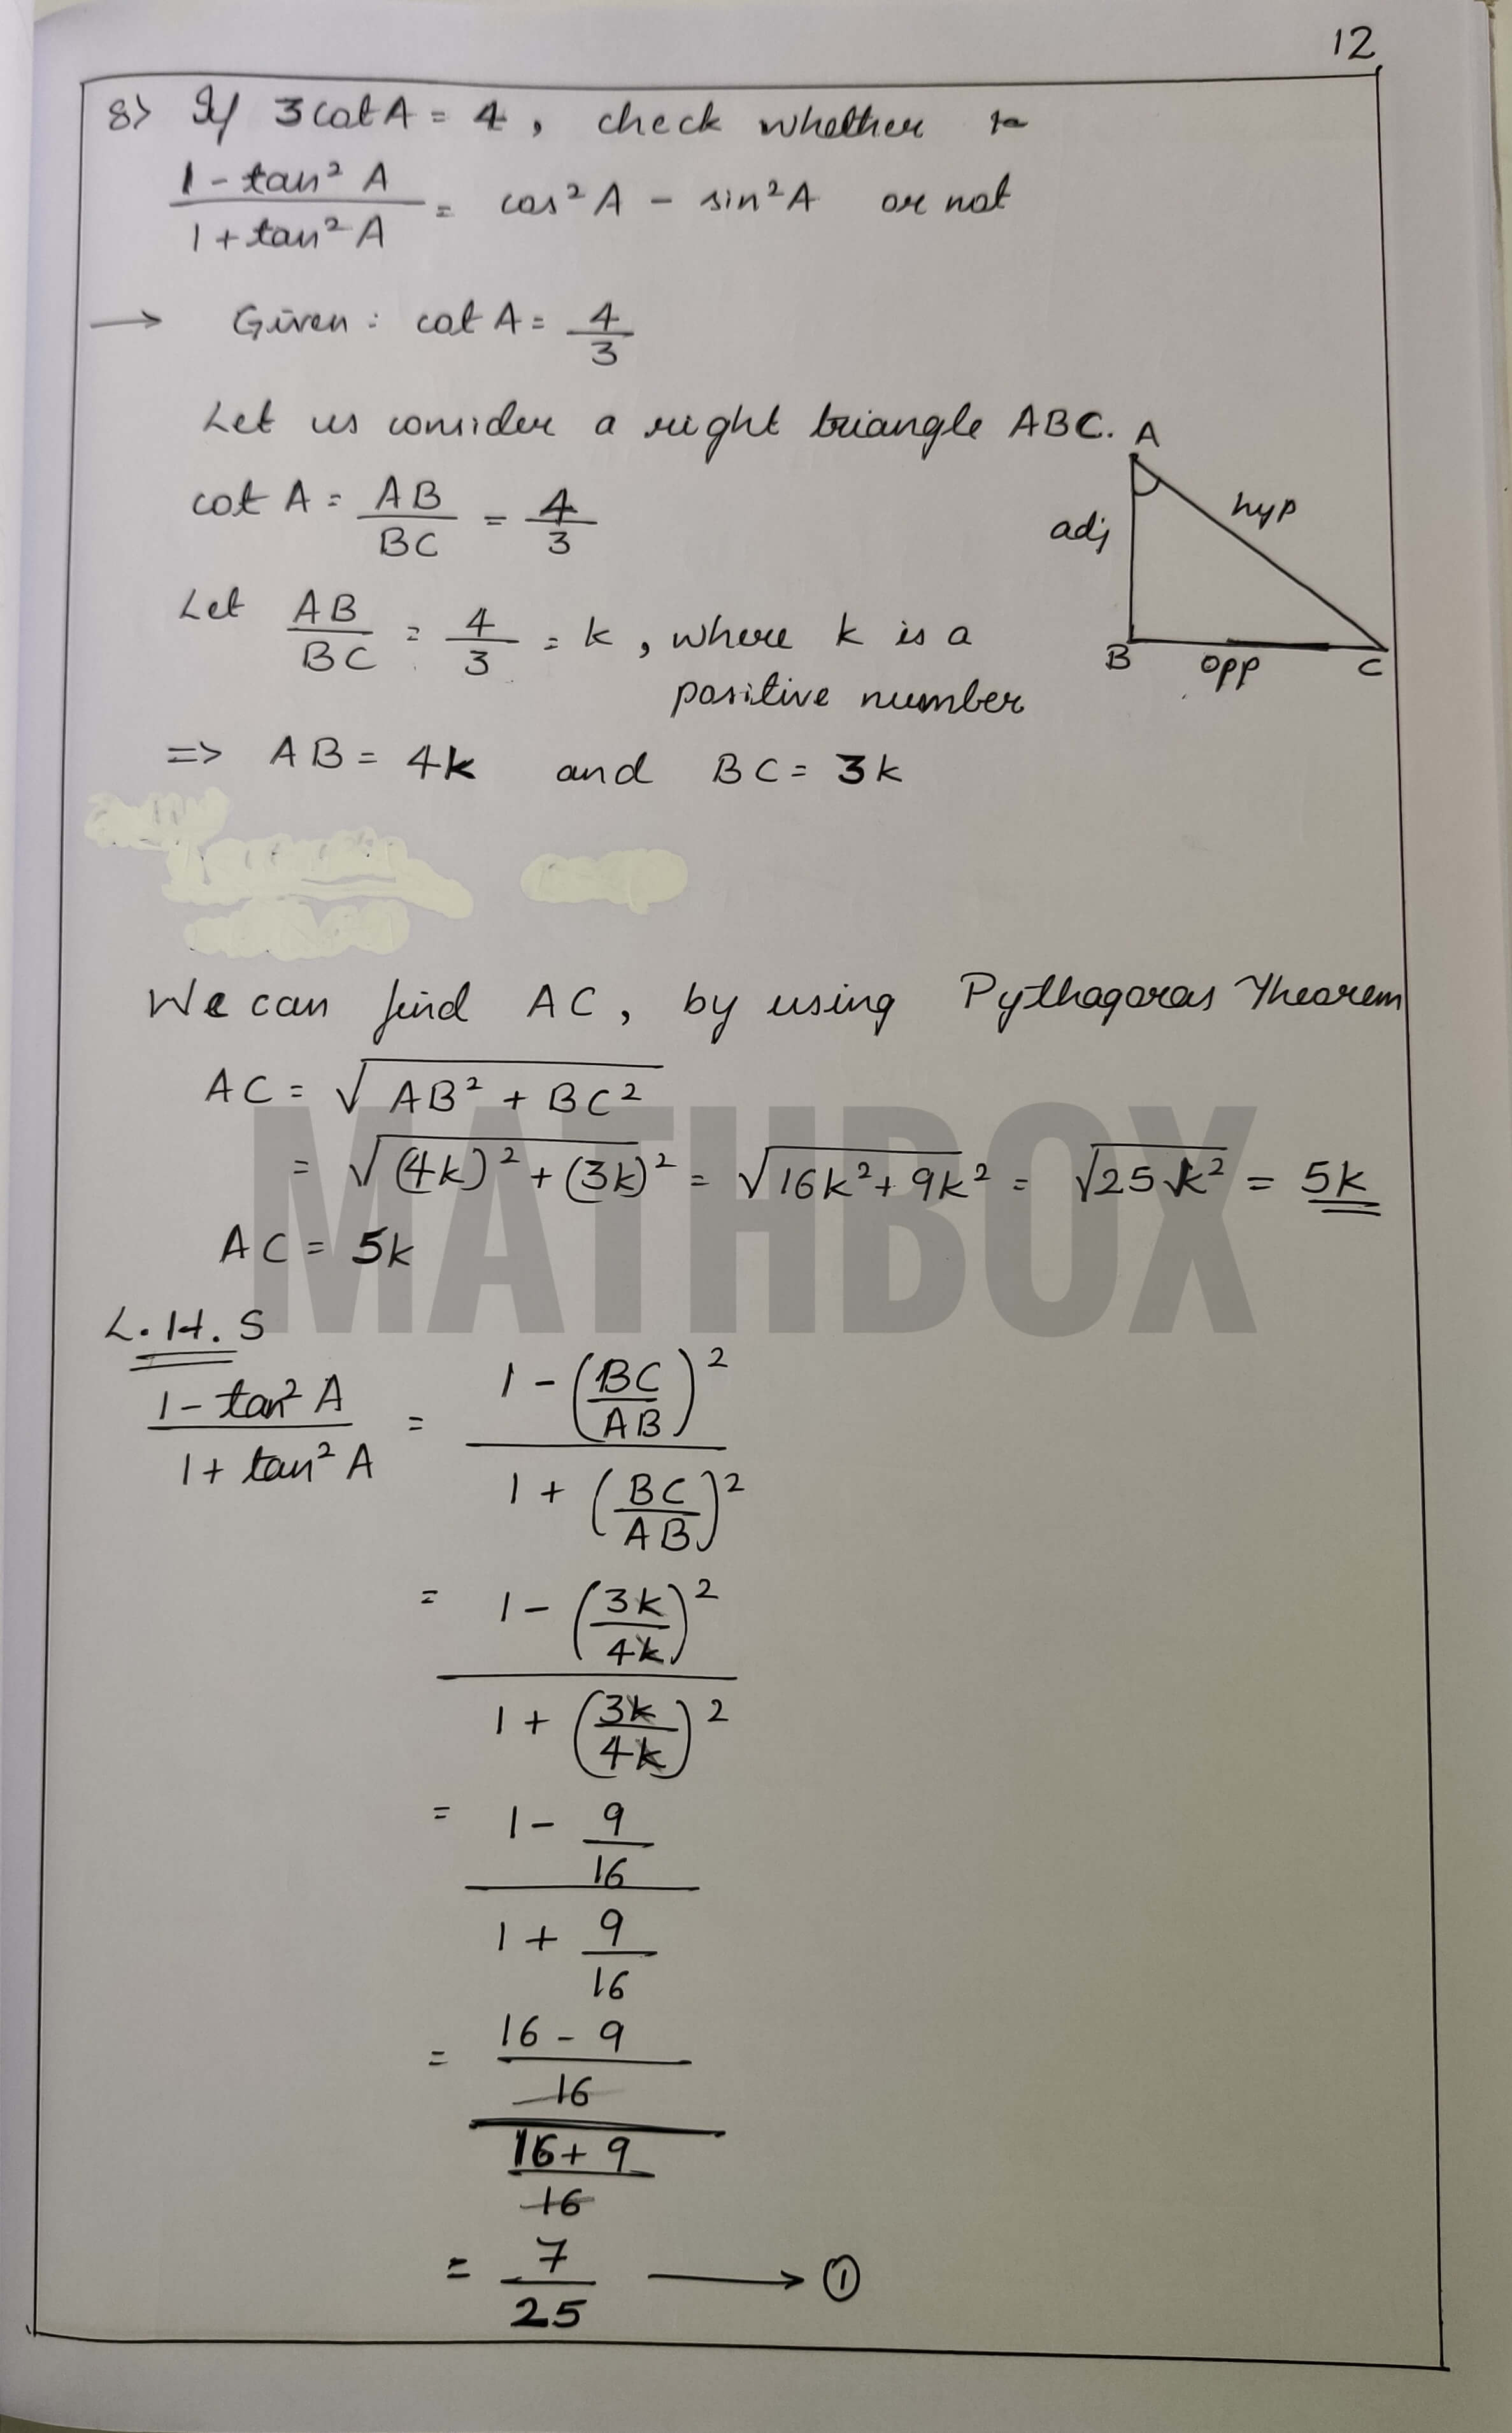 12
8> If 3 cot A = 4 , check whether
1 - tan² A / 1 + tan² A = cos² A - sin² A or not
→ Given : cot A = 4/3
Let us consider a right triangle ABC.
A
cot A = AB/BC = 4/3
adj
hyp
Let AB/BC = 4/3 = k , where k is a
B
opp
C
positive number
=> AB = 4k and BC = 3k
We can find AC, by using Pythagoras Theorem
AC = √AB² + BC²
= √(4k)² + (3k)² = √16k² + 9k² = √25k² = 5k
AC = 5k
MATHBOX
L.H.S
1 - tan² A / 1 + tan² A = 1 - (BC/AB)² / 1 + (BC/AB)²
= 1 - (3k/4k)² / 1 + (3k/4k)²
= 1 - 9/16 / 1 + 9/16
= 16 - 9/16 / 16 + 9/16
= 7/25 → ①